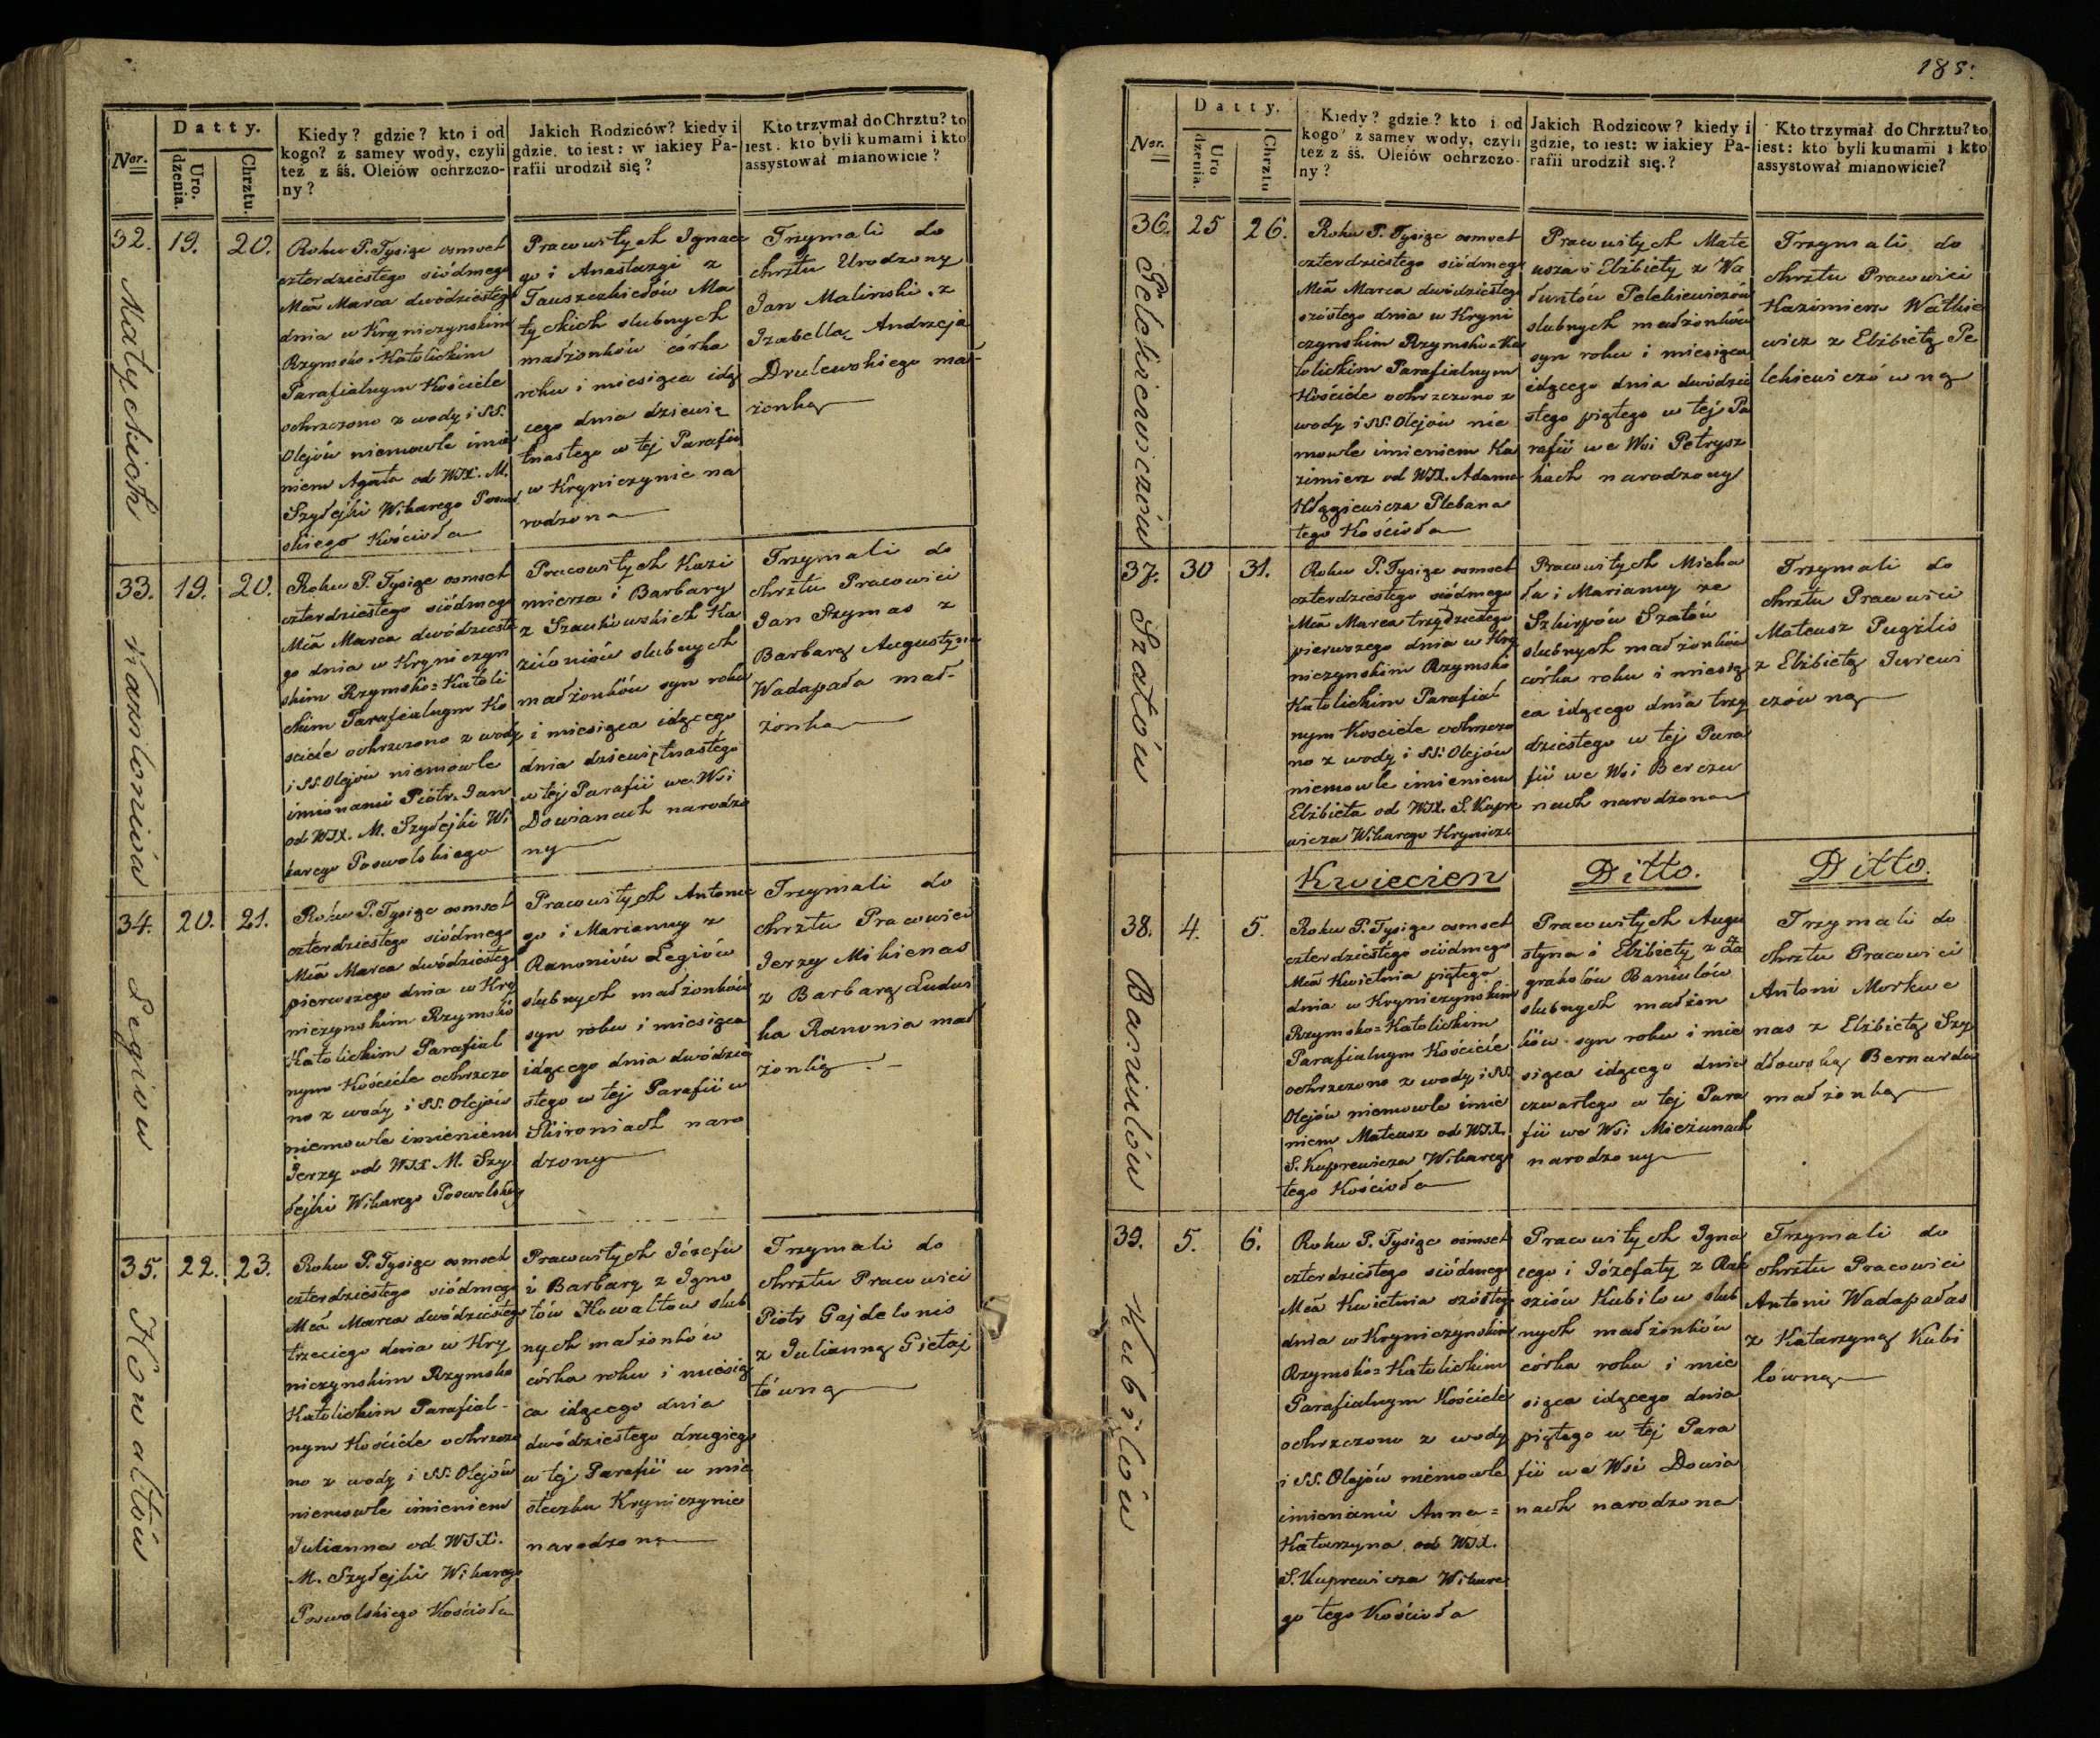 Ner.
Datty.
Uro.
dzenia.
Chrztu.
Kiedy? gdzie? kto i od
kogo? z samey wody, czyli
też z śś. Oleiów ochrzczo-
ny?
Jakich Rodziców? kiedy i
gdzie, to iest: w iakiey Pa-
rafii urodził się?
Kto trzymał do Chrztu? to
iest: kto byli kumami i kto
assystował mianowicie?
32. 19. 20.
Matyckich
Roku P. Tysiąc osmset
czterdziestego siódmego
Mca Marca dwódziestego
dnia w Kryniczynskim
Rzymsko-Katolickim
Parafialnym Kościele
ochrzczono z wody i SS.
Olejów niemowle imie
niem Agata od WJX. M.
Szyłejki Wikarego Poswol
skiego Kościoła
Pracowitych Ignace
go i Anastazyi z
Tauszezkiedów Ma
tyckich slubnych
małżonków córka
roku i miesiąca idą
cego dnia dziewię
tnastego w tej Parafii
w Kryniczynie na
rodzona
Trzymali do
chrztu Urodzony
Jan Malinski z
Izabellą Andrzeja
Drulewskiego mał-
żonką
33. 19. 20.
Kaziloniów
Roku P. Tysiąc osmset
czterdziestego siódmego
Mca Marca dwódzieste
go dnia w Kryniczyn
skim Rzymsko=Katoli
ckim Parafialnym Ko
sciele ochrzczono z wody
i SS. Olejów niemowle
imionami Piotr, Jan
od WJX. M. Szyłejki Wi
karego Poswolskiego
Pracowitych Kazi
mierza i Barbary
z Szaukowskich Ka
ziloniów slubnych
małżonków syn roku
i miesiąca idącego
dnia dziewiętnastego
w tej Parafii we Wsi
Dowianach narodzo
ny
Trzymali do
chrztu Pracowici
Jan Szymas z
Barbarą Augustyna
Wadapała mał-
żonką
34. 20. 21.
Legiów
Roku P. Tysiąc osmset
czterdziestego siódmego
Mca Marca dwódziestego
pierwszego dnia w Kry
niczynskim Rzymsko
Katolickim Parafial
nym Kościele ochrzczo
no z wody i SS. Olejów
niemowle imieniem
Jerzy od WJX M. Szy
łejki Wikarego Poswolskiego
Pracowitych Antonie
go i Marianny z
Ranoniów Legiów
slubnych małżonków
syn roku i miesiąca
idącego dnia dwódzie
stego w tej Parafii w
Skironiach naro
dzony
Trzymali do
chrztu Pracowici
Jerzy Mikienas
z Barbarą Ludwi
ka Ranonia mał
żonką
35. 22. 23.
Kowaltów
Roku P. Tysiąc osmset
czterdziestego siódmego
Mca Marca dwódziestego
trzeciego dnia w Kry
niczynskim Rzymsko
Katolickim Parafial-
nym Kościele ochrzczo
no z wody i SS. Olejów
niemowle imieniem
Julianna od WJX.
M. Szyłejki Wikarego
Poswolskiego Kościoła
Pracowitych Józefa
i Barbary z Igno
tów Kowaltow slub
nych małżonków
córka roku i miesią
ca idącego dnia
dwódziestego drugiego
w tej Parafii w mia
steczku Kryniczynie
narodzona
Trzymali do
chrztu Pracowici
Piotr Gajdelonis
z Julianną Gietaj
tówną
185.
Ner.
Datty.
Uro
dzenia.
Chrztu
Kiedy? gdzie? kto i od
kogo? z samey wody, czyli
też z śś. Oleiów ochrzczo-
ny?
Jakich Rodziców? kiedy i
gdzie, to iest: w iakiey Pa-
rafii urodził się.?
Kto trzymał do Chrztu? to
iest: kto byli kumami i kto
assystował mianowicie?
36. 25 26.
Pelekiewiczów
Roku P. Tysiąc osmset
czterdziestego siódmego
Mca Marca dwódziestego
szóstego dnia w Kryni
czynskim Rzymsko=Ka
tolickim Parafialnym
Kościele ochrzczono z
wody i SS. Olejów nie
mowle imieniem Ka
zimierz od WJX. Adama
Kłągiewicza Plebana
tego Kościoła
Pracowitych Mate
usza i Elżbiety z Wa
łuntów Pelekiewiczów
slubnych małżonków
syn roku i miesiąca
idącego dnia dwódzie
stego piątego w tej Pa
rafii we Wsi Petrysz
kach narodzony
Trzymali do
chrztu Pracowici
Kazimierz Watkie
wicz z Elżbietą Pe
lekiewiczówną
37. 30 31.
Szatów
Roku P. Tysiąc osmset
czterdziestego siódmego
Mca Marca trzydziestego
pierwszego dnia w Kry
niczynskim Rzymsko
Katolickim Parafial
nym Kosciele ochrzczo
no z wody i SS. Olejów
niemowle imieniem
Elżbieta od WJX. S. Kupre
wicza Wikarego Krynicz.
Pracowitych Micha
ła i Marianny ze
Szkirpów Szatów
slubnych małżonków
córka roku i miesią
ca idącego dnia trzy
dziestego w tej Para
fii we Wsi Berczu
nach narodzona
Trzymali do
chrztu Pracowici
Mateusz Pugżlis
z Elżbietą Jurewi
czówną
Kwiecien Ditto. Ditto.
38. 4. 5.
Baniulów
Roku P. Tysiąc osmset
czterdziestego siódmego
Mca Kwietnia piątego
dnia w Kryniczynskim
Rzymsko=Katolickim
Parafialnym Kościele
ochrzczono z wody i SS.
Olejów niemowle imie
niem Mateusz od WJX.
S. Kuprewicza Wikarego
tego Kościoła
Pracowitych Augu
styna i Elżbiety z Za
grakolów Baniulów
slubnych małżon
ków syn roku i mie
siąca idącego dnia
czwartego w tej Para
fii we Wsi Mieżunach
narodzony
Trzymali do
chrztu Pracowici
Antoni Morkuc
nas z Elżbietą Szy
dłowską Bernarda
małżonką
39. 5. 6.
Kubilów
Roku P. Tysiąc osmset
czterdziestego siódmego
Mca Kwietnia szóstego
dnia w Kryniczynskim
Rzymsko=Katolickim
Parafialnym Kościele
ochrzczono z wody
i SS. Olejów niemowle
imionami Anna=
Katarzyna od WJX.
S. Kuprewicza Wikare
go tego Kościoła
Pracowitych Igna
cego i Józefaty z Rak
sziów Kubilow slub
nych małżonków
córka roku i mie
siąca idącego dnia
piątego w tej Para
fii we Wsi Dowia
nach narodzona
Trzymali do
chrztu Pracowici
Antoni Wadapałas
z Katarzyną Kubi
lówną